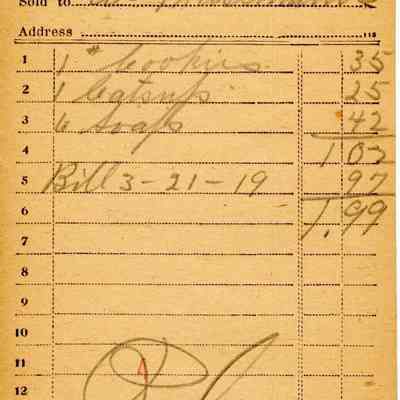 Sold to
Address 115
1 1 # cookies 35
2 1 Catsup 25
3 6 Soaps 42
4 1 02
5 Bill 3-21-19 97
6 1.99
7
8
9
10
11
12